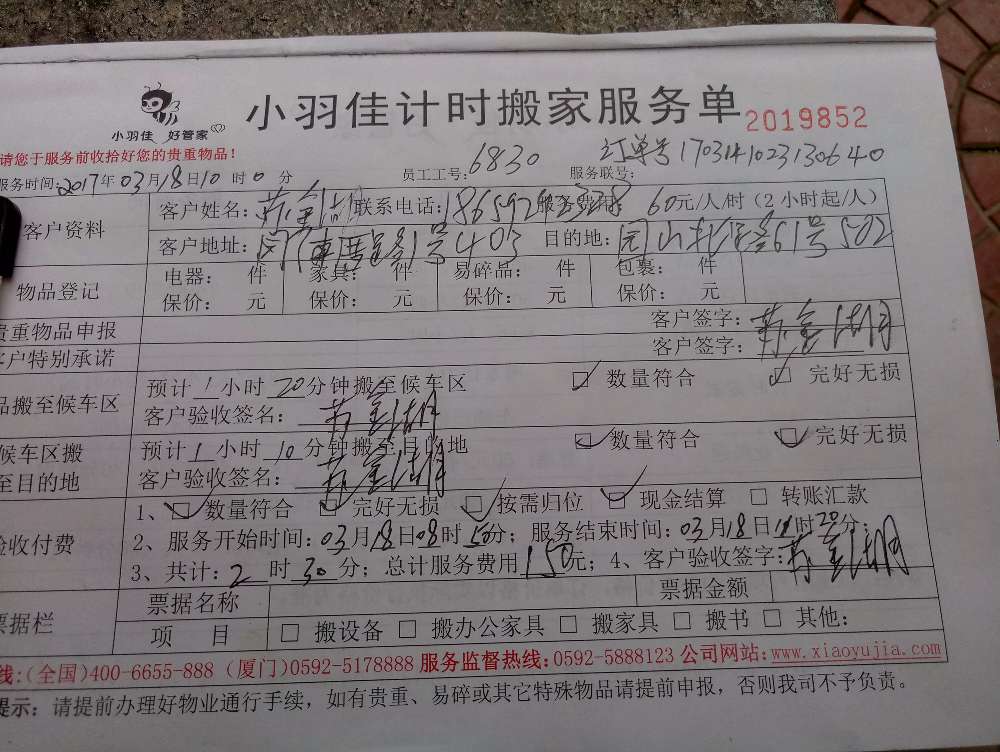 小羽佳 好管家
小羽佳计时搬家服务单 2019852
请您于服务前收拾好您的贵重物品！
员工工号：6830 服务联号： 订单号170314102313064​0
服务时间：2017年03月18日10时0分
客户资料 客户姓名：苏金湖 联系电话： 60元/人/时（2小时起/人）
客户地址：1号403 目的地：61号502
物品登记 电器： 件 家具： 件 易碎品： 件 包裹： 件
保价： 元 保价： 元 保价： 元 保价： 元
贵重物品申报 客户签字：
客户特别承诺 客户签字：
品搬至候车区 预计1小时20分钟搬至候车区 数量符合 完好无损
客户验收签名：
候车区搬 预计1小时10分钟搬至目的地 数量符合 完好无损
至目的地 客户验收签名：
1、数量符合 完好无损 按需归位 现金结算 转账汇款
验收付费 2、服务开始时间：03月18日08时50分；服务结束时间：03月18日11时20分；
3、共计：2时30分；总计服务费用150元；4、客户验收签字：
票据栏 票据名称 票据金额
项 目 搬设备 搬办公家具 搬家具 搬书 其他：
线：(全国)400-6655-888 (厦门)0592-5178888 服务监督热线：0592-5888123 公司网站：www.xiaoyujia.com
提示：请提前办理好物业通行手续，如有贵重、易碎或其它特殊物品请提前申报，否则我司不予负责。